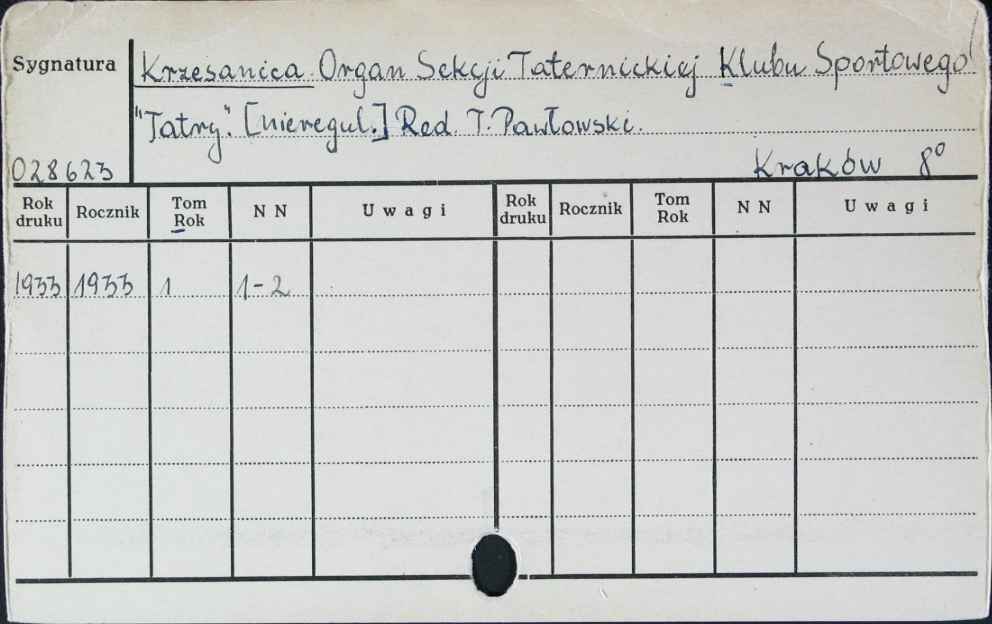 Sygnatura
Krzesanica. Organ Sekcji Taternickiej Klubu Sportowego
"Tatry". [nieregul.] Red. T. Pawłowski.
028623
Kraków 8°
Rok druku Rocznik Tom Rok NN Uwagi Rok druku Rocznik Tom Rok NN Uwagi
1933 1933 1 1-2